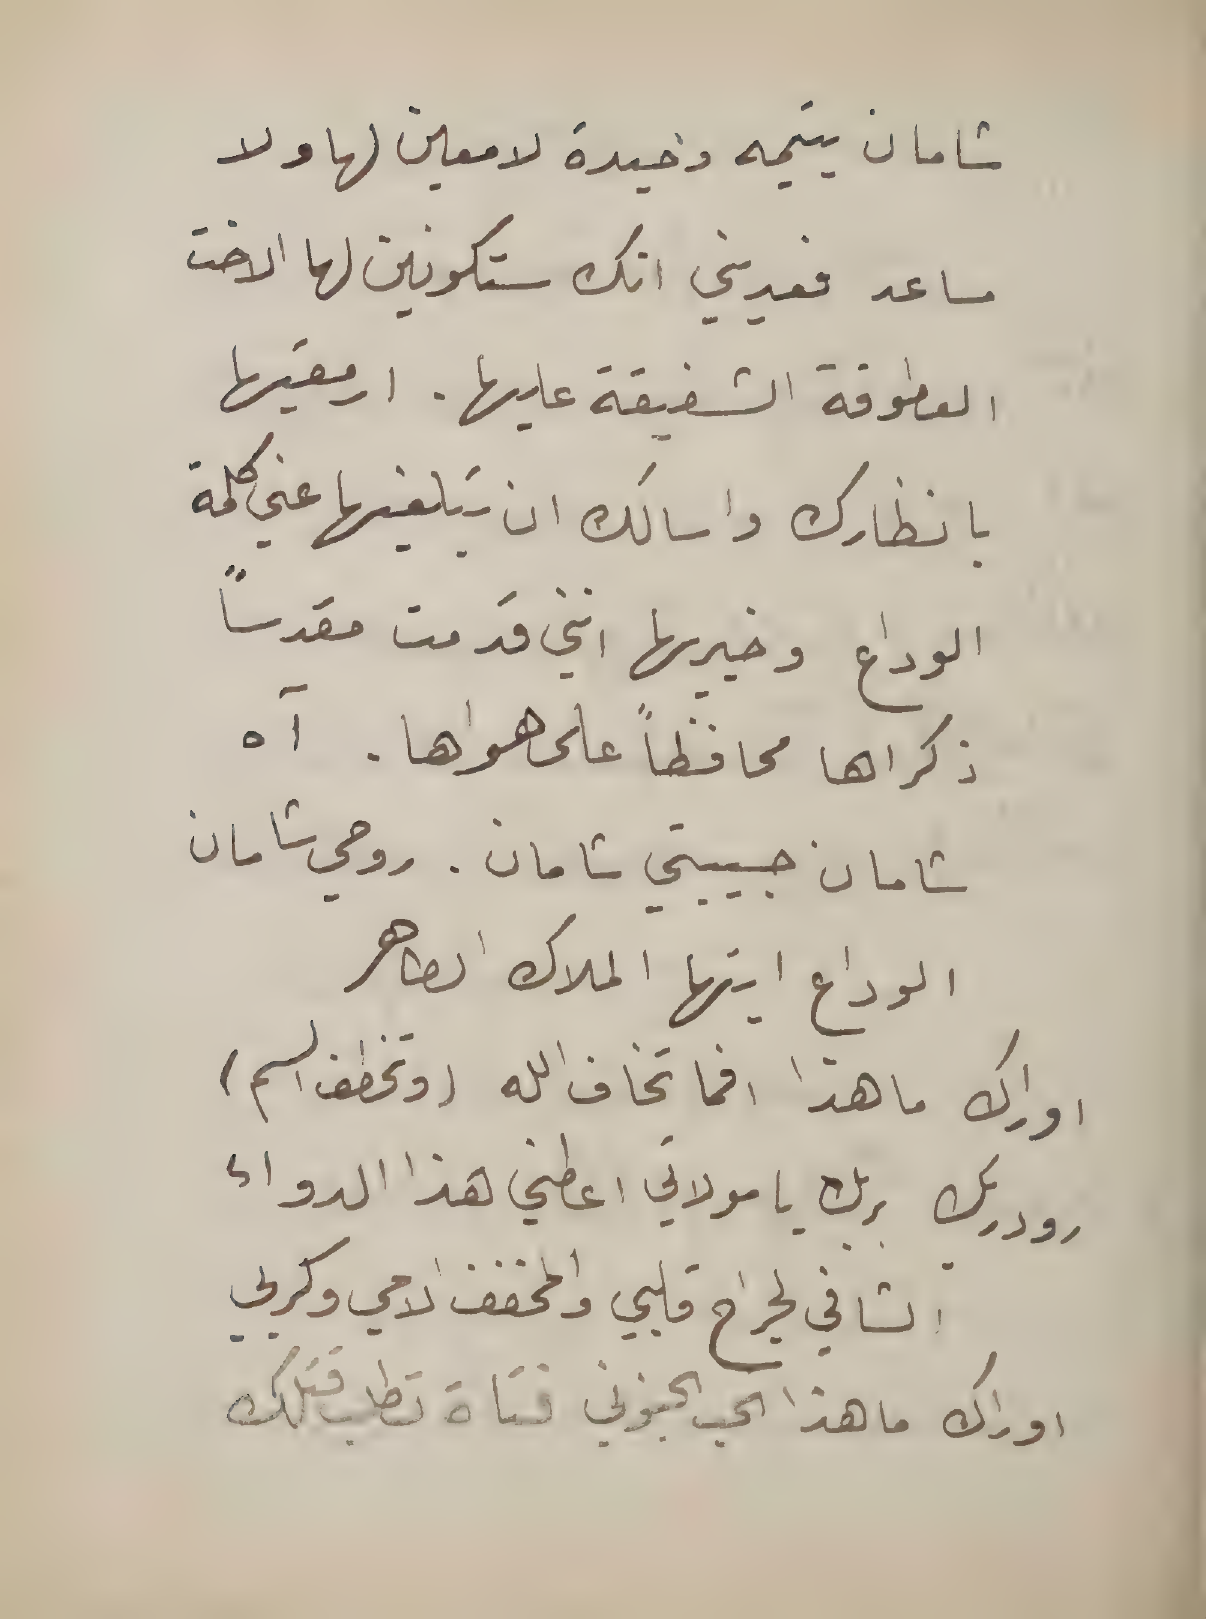 شامان يتيمه وحيدة لا معين لها ولا
مساعد فعديني انك ستكونين لها الاخت
العطوفة الشفيقة عليها . ارمقيها
بانظارك واسالك ان تبلغيها عني كلمة
الوداع وخبريها انني قد مت مقدساً
ذكراها محافظاً على هواها . آه
شامان حبيبتي شامان . روحي شامان
الوداع ايتها الملاك الطاهر
اوراك ما هذا افما تخاف الله (وتخطف السم)
رودريك بربك يا مولاتي اعطني هذا الدواء
الشافي لجراح قلبي والمخفف الامي وكربي
اوراك ما هذا الحب الجنوني فتاة تطلب قتلك